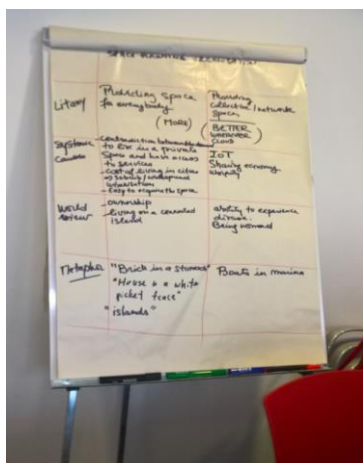 SPACE
Litany
Providing space
for everybody
(MORE)
Providing
collective/network
spaces
(BETTER
Systemic
causes
- contradiction between the desire
to live in a private
space and have access
to services
- cost of living in cities
=> suburb/widespread
urbanisation
- Easy to acquire the space
IoT
Sharing economy
World
view
- ownership
- living on a
island
ability to experience
diverse.
Being nomad
Metaphor
"Brick in a
"House & a white
picket fence"
"islands"
Boats in marina